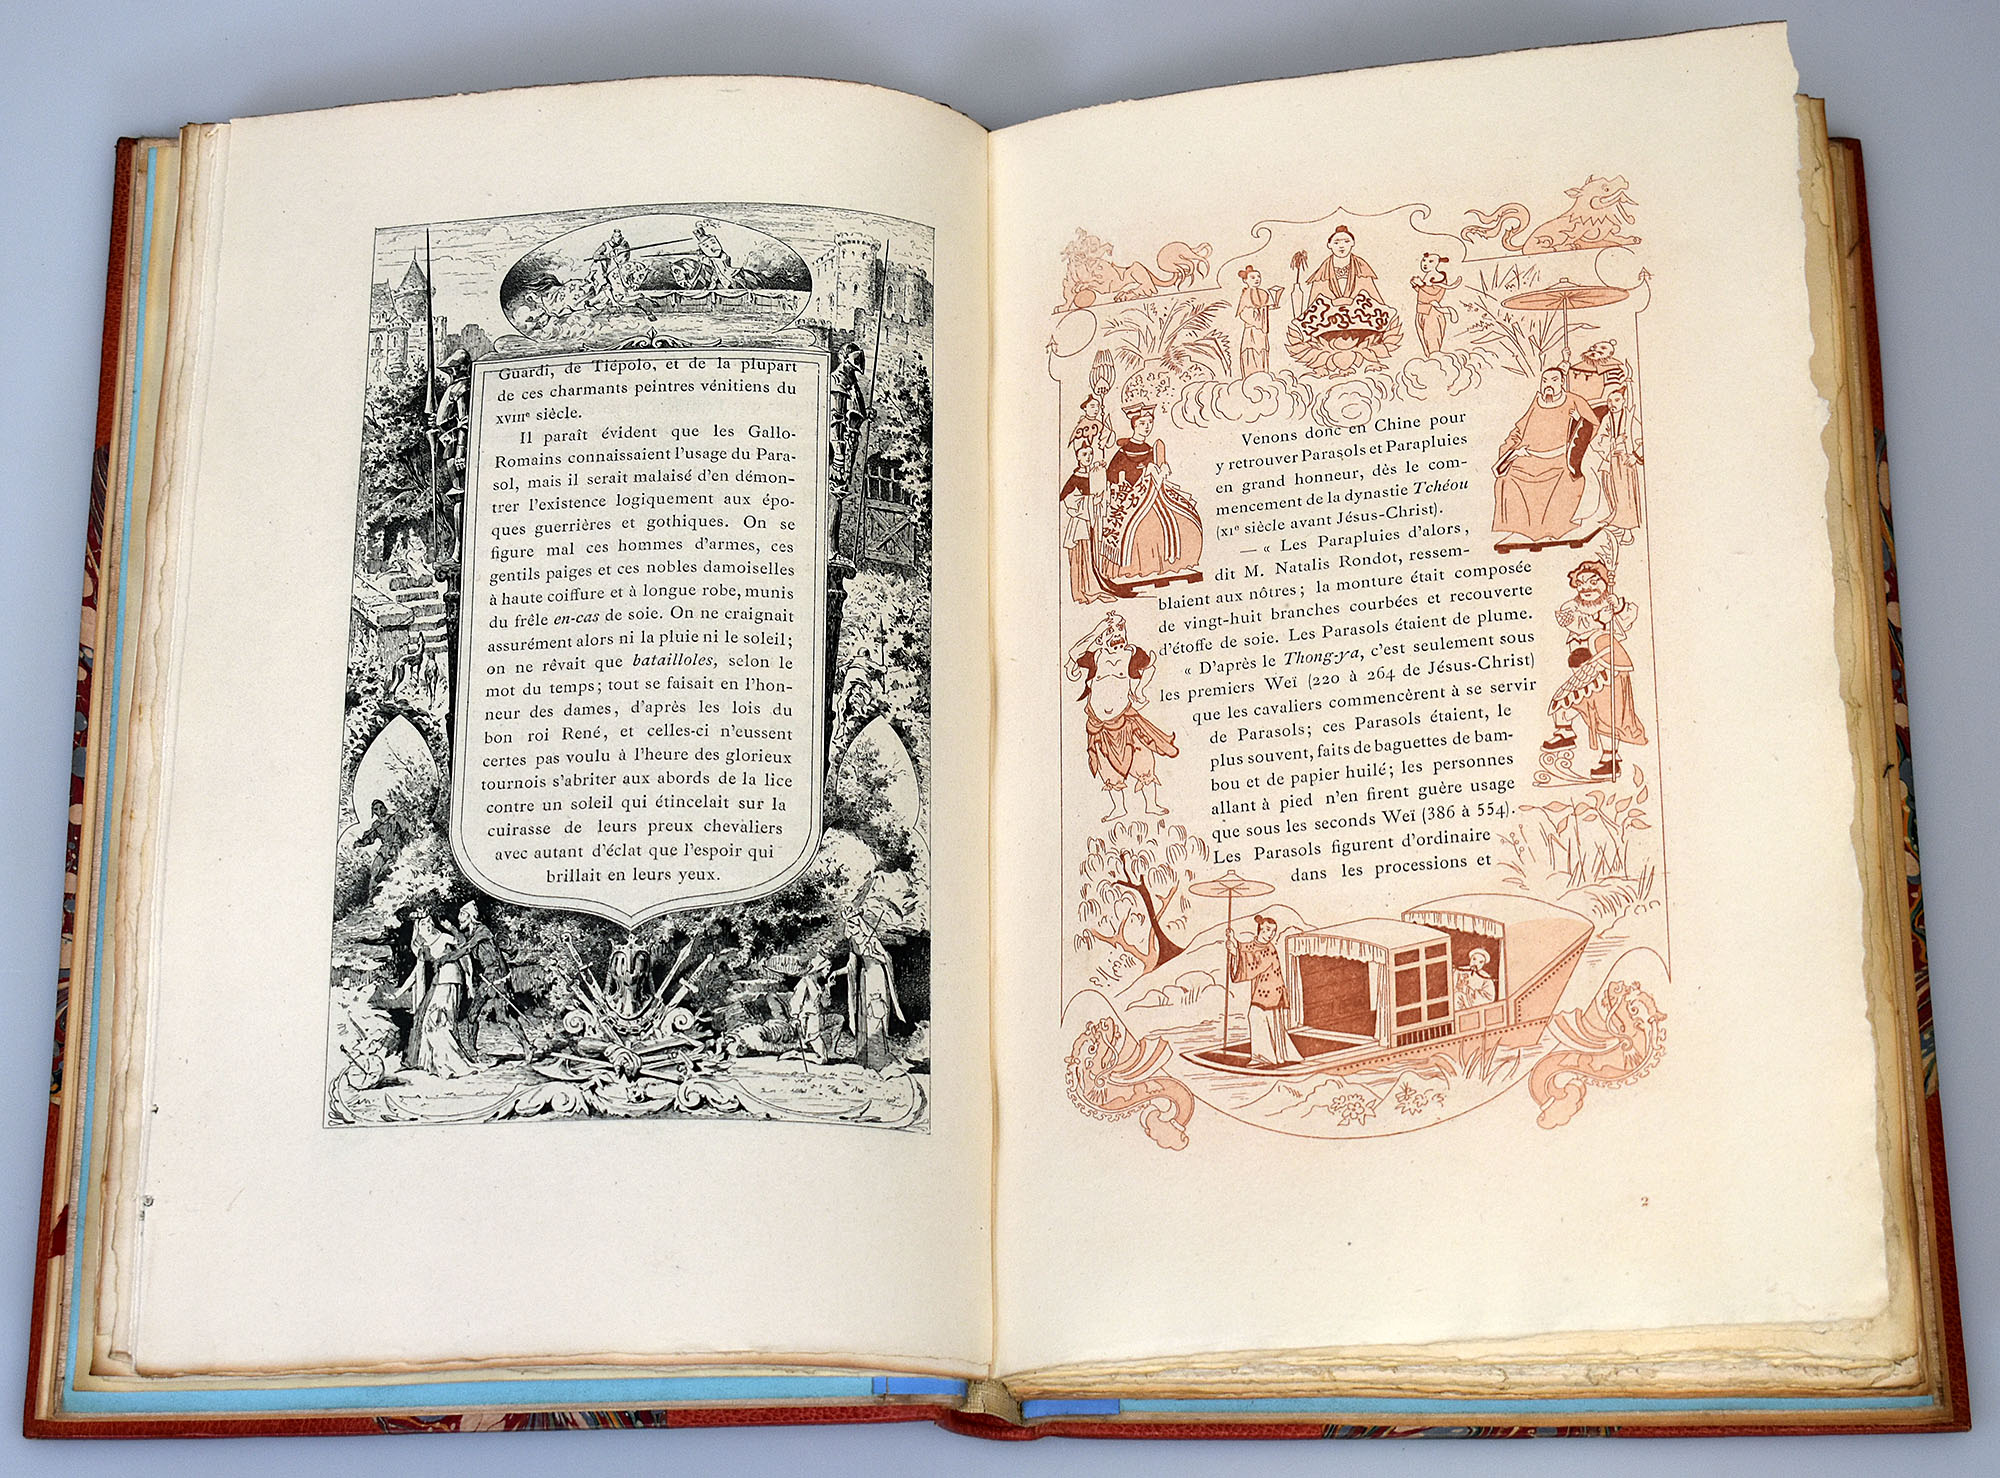 Guardi, de Tiépolo, et de la plupart
de ces charmants peintres vénitiens du
XVIIIe siècle.
Il paraît évident que les Gallo-
Romains connaissaient l'usage du Para-
sol, mais il serait malaisé d'en démon-
trer l'existence logiquement aux épo-
ques guerrières et gothiques. On se
figure mal ces hommes d'armes, ces
gentils paiges et ces nobles damoiselles
à haute coiffure et à longue robe, munis
du frêle en-cas de soie. On ne craignait
assurément alors ni la pluie ni le soleil;
on ne rêvait que batailloles, selon le
mot du temps; tout se faisait en l'hon-
neur des dames, d'après les lois du
bon roi René, et celles-ci n'eussent
certes pas voulu à l'heure des glorieux
tournois s'abriter aux abords de la lice
contre un soleil qui étincelait sur la
cuirasse de leurs preux chevaliers
avec autant d'éclat que l'espoir qui
brillait en leurs yeux.
Venons donc en Chine pour
y retrouver Parasols et Parapluies
en grand honneur, dès le com-
mencement de la dynastie Tchéou
(XIe siècle avant Jésus-Christ).
— « Les Parapluies d'alors,
dit M. Natalis Rondot, ressem-
blaient aux nôtres; la monture était composée
de vingt-huit branches courbées et recouverte
d'étoffe de soie. Les Parasols étaient de plume.
« D'après le Thong-ya, c'est seulement sous
les premiers Weï (220 à 264 de Jésus-Christ)
que les cavaliers commencèrent à se servir
de Parasols; ces Parasols étaient, le
plus souvent, faits de baguettes de bam-
bou et de papier huilé; les personnes
allant à pied n'en firent guère usage
que sous les seconds Weï (386 à 554).
Les Parasols figurent d'ordinaire
dans les processions et
2